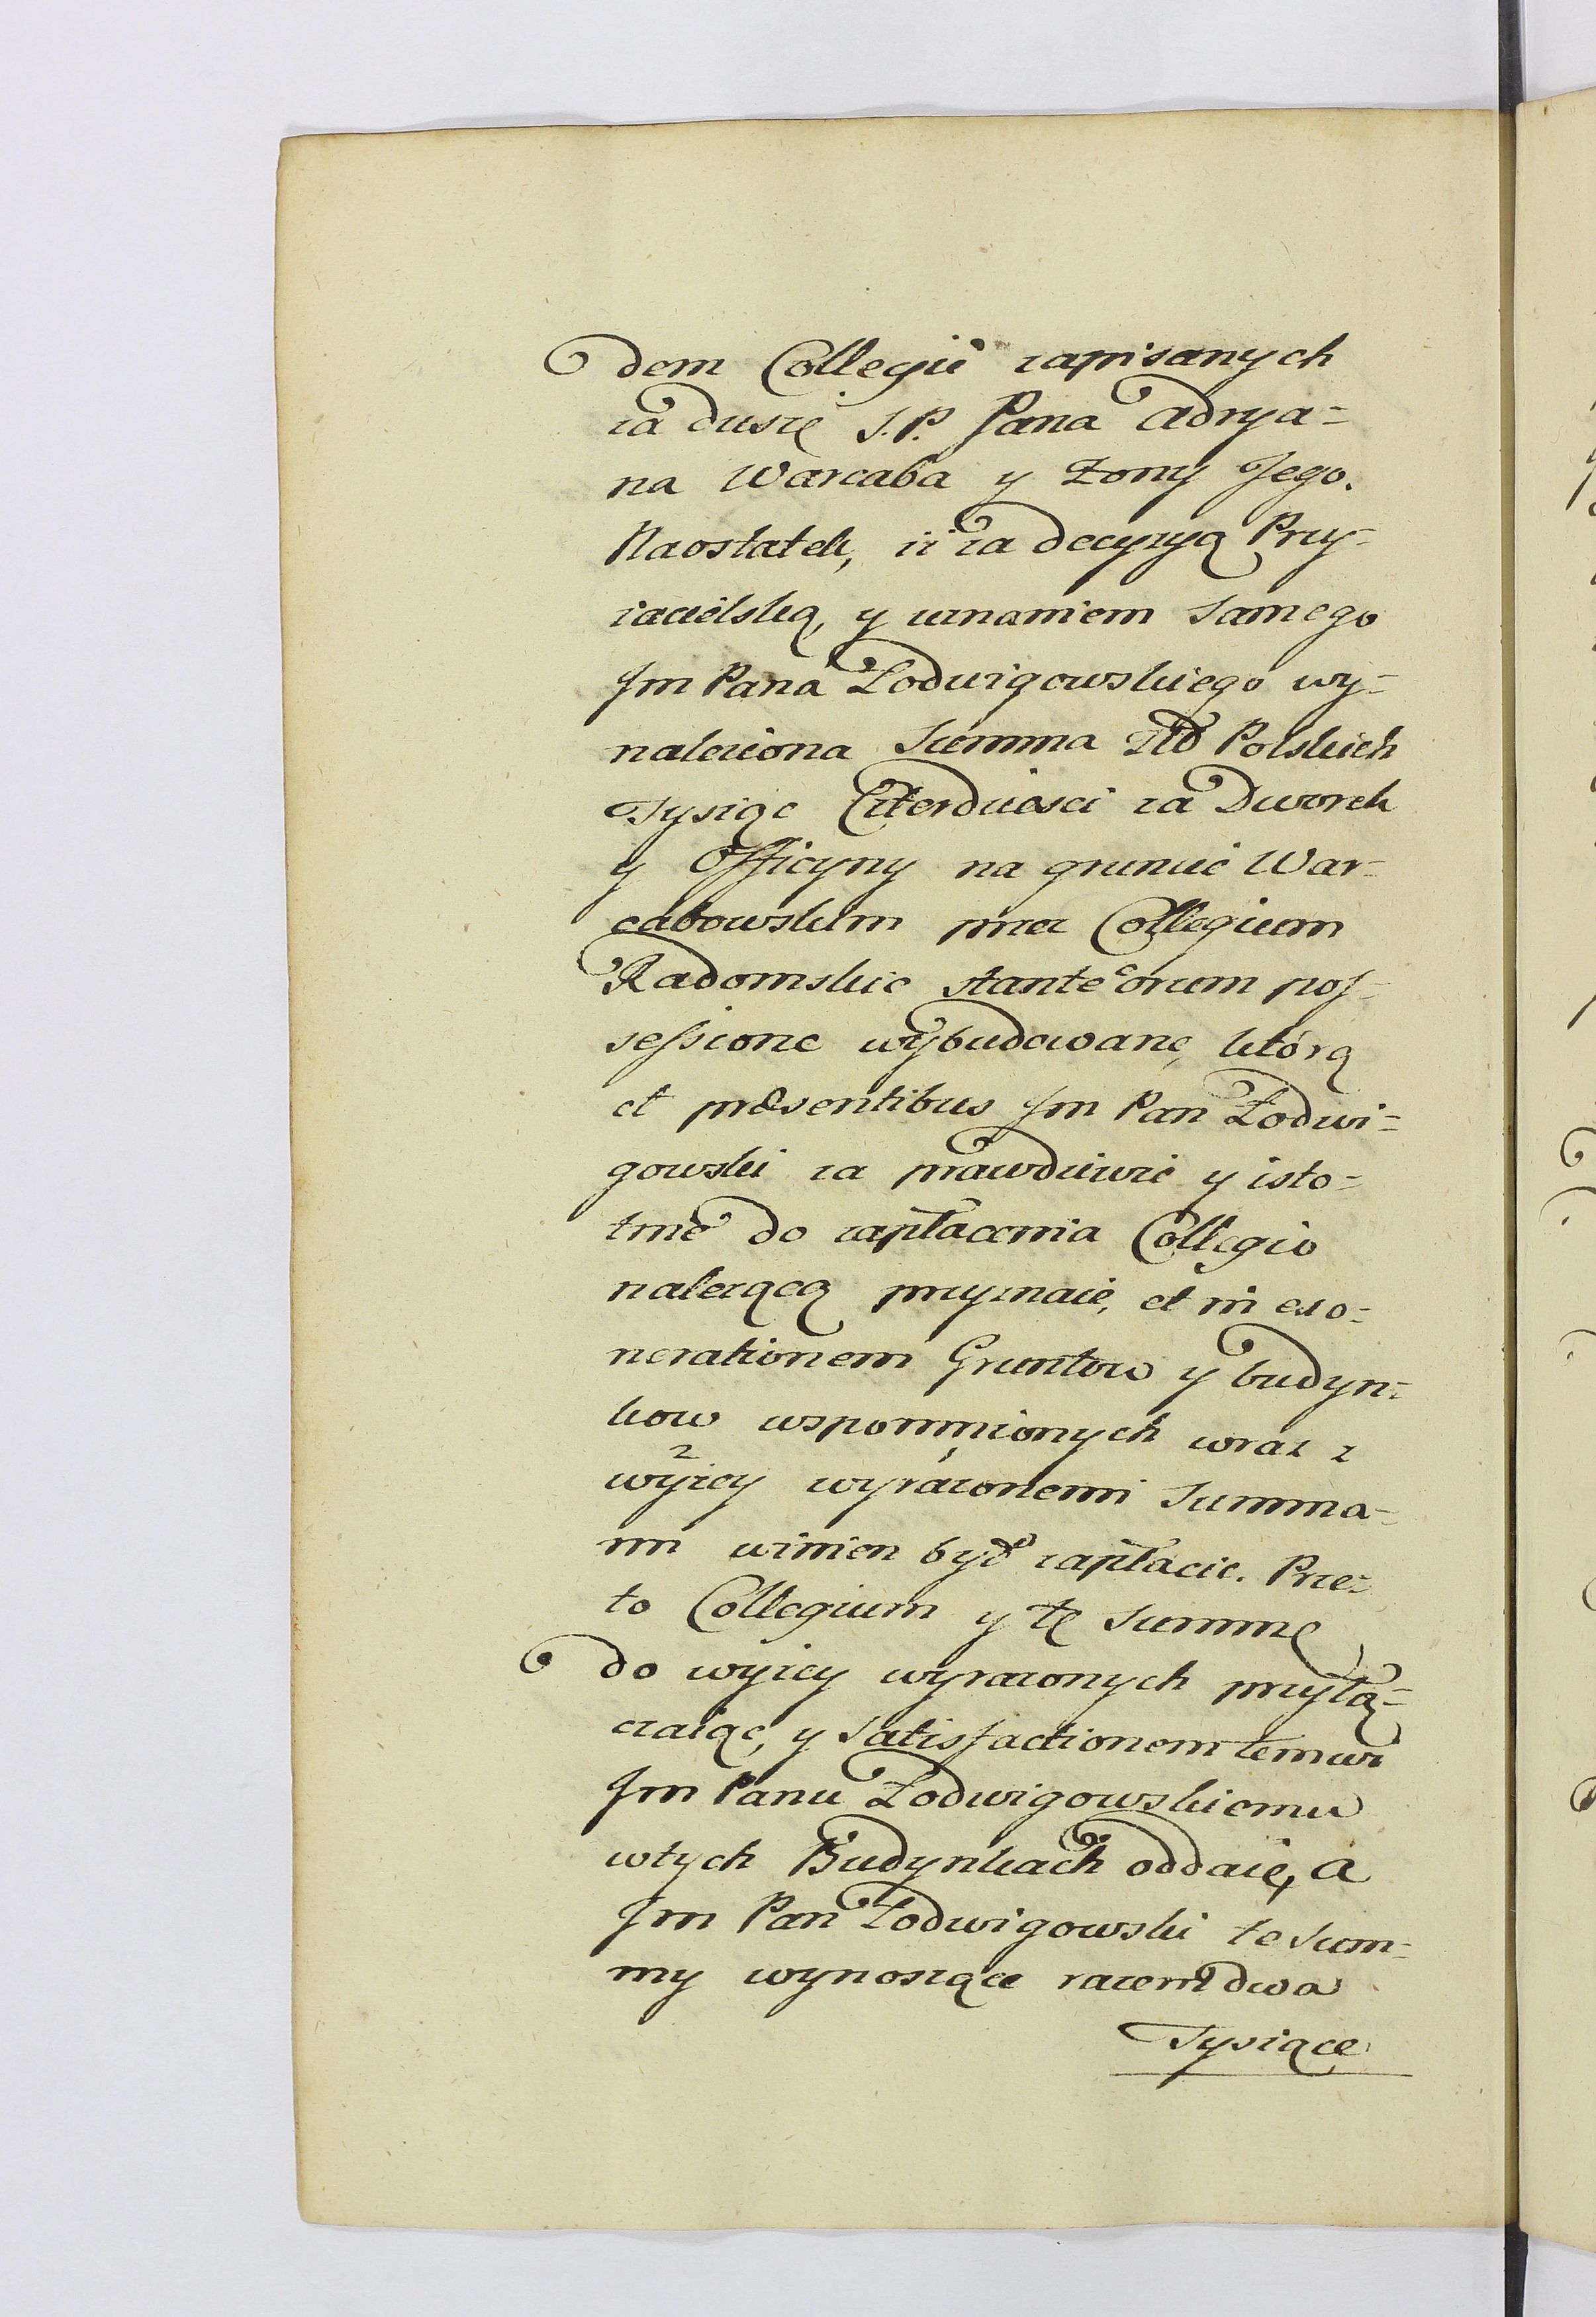 dem Collegii zapisanych
za duszę S. P. Pana Adrya=
na Warcaba y Zony Jego.
Naostatek, iż za decyzyą Przy=
iacielską, y uznaniem samego
Jm Pana Lodwigowskiego wy=
naleziona Summa Złd Polskich
Tysiąc Czterdzieści za Dworek
y Officyny na gruncie War=
cabowskim przez Collegium
Radomskie stante eorum pos=
sessione wybudowane, którą
et præsentibus Jm Pan Lodwi=
gowski za prawdziwie y isto=
tnie do zapłacenia Collegio
należącą przyznaie, et in exo=
nerationem Gruntow y budyn=
kow wspomnionych wraz z
wyżey wyrażonemi Summa=
mi winien był zapłacic. Prze=
to Collegium y tę Summę
do wyżey wyrażonych przyłą=
czaiąc, y Satisfactionem temuż
Jm Panu Lodwigowskiemu
wtych Budynkach oddaie, a
Jm Pan Lodwigowski te Sum=
my wynoszące razem dwa
Tysiące